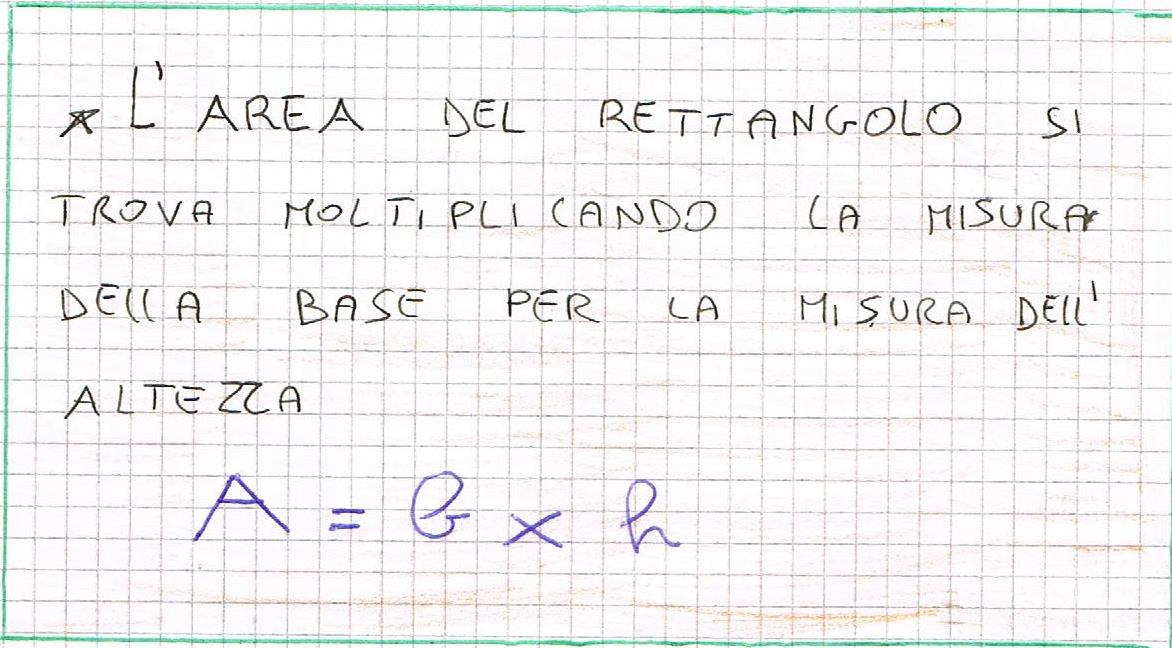 * L'AREA DEL RETTANGOLO SI
TROVA MOLTIPLICANDO LA MISURA
DELLA BASE PER LA MISURA DELL'
ALTEZZA
A = b x h